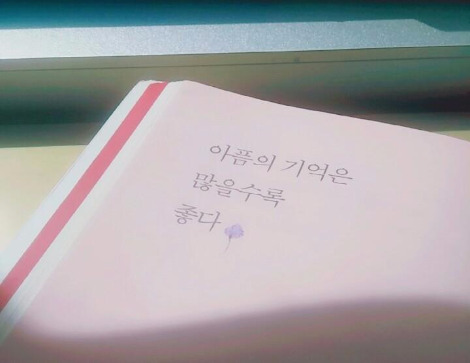 아픔의 기억은
많을수록
좋다